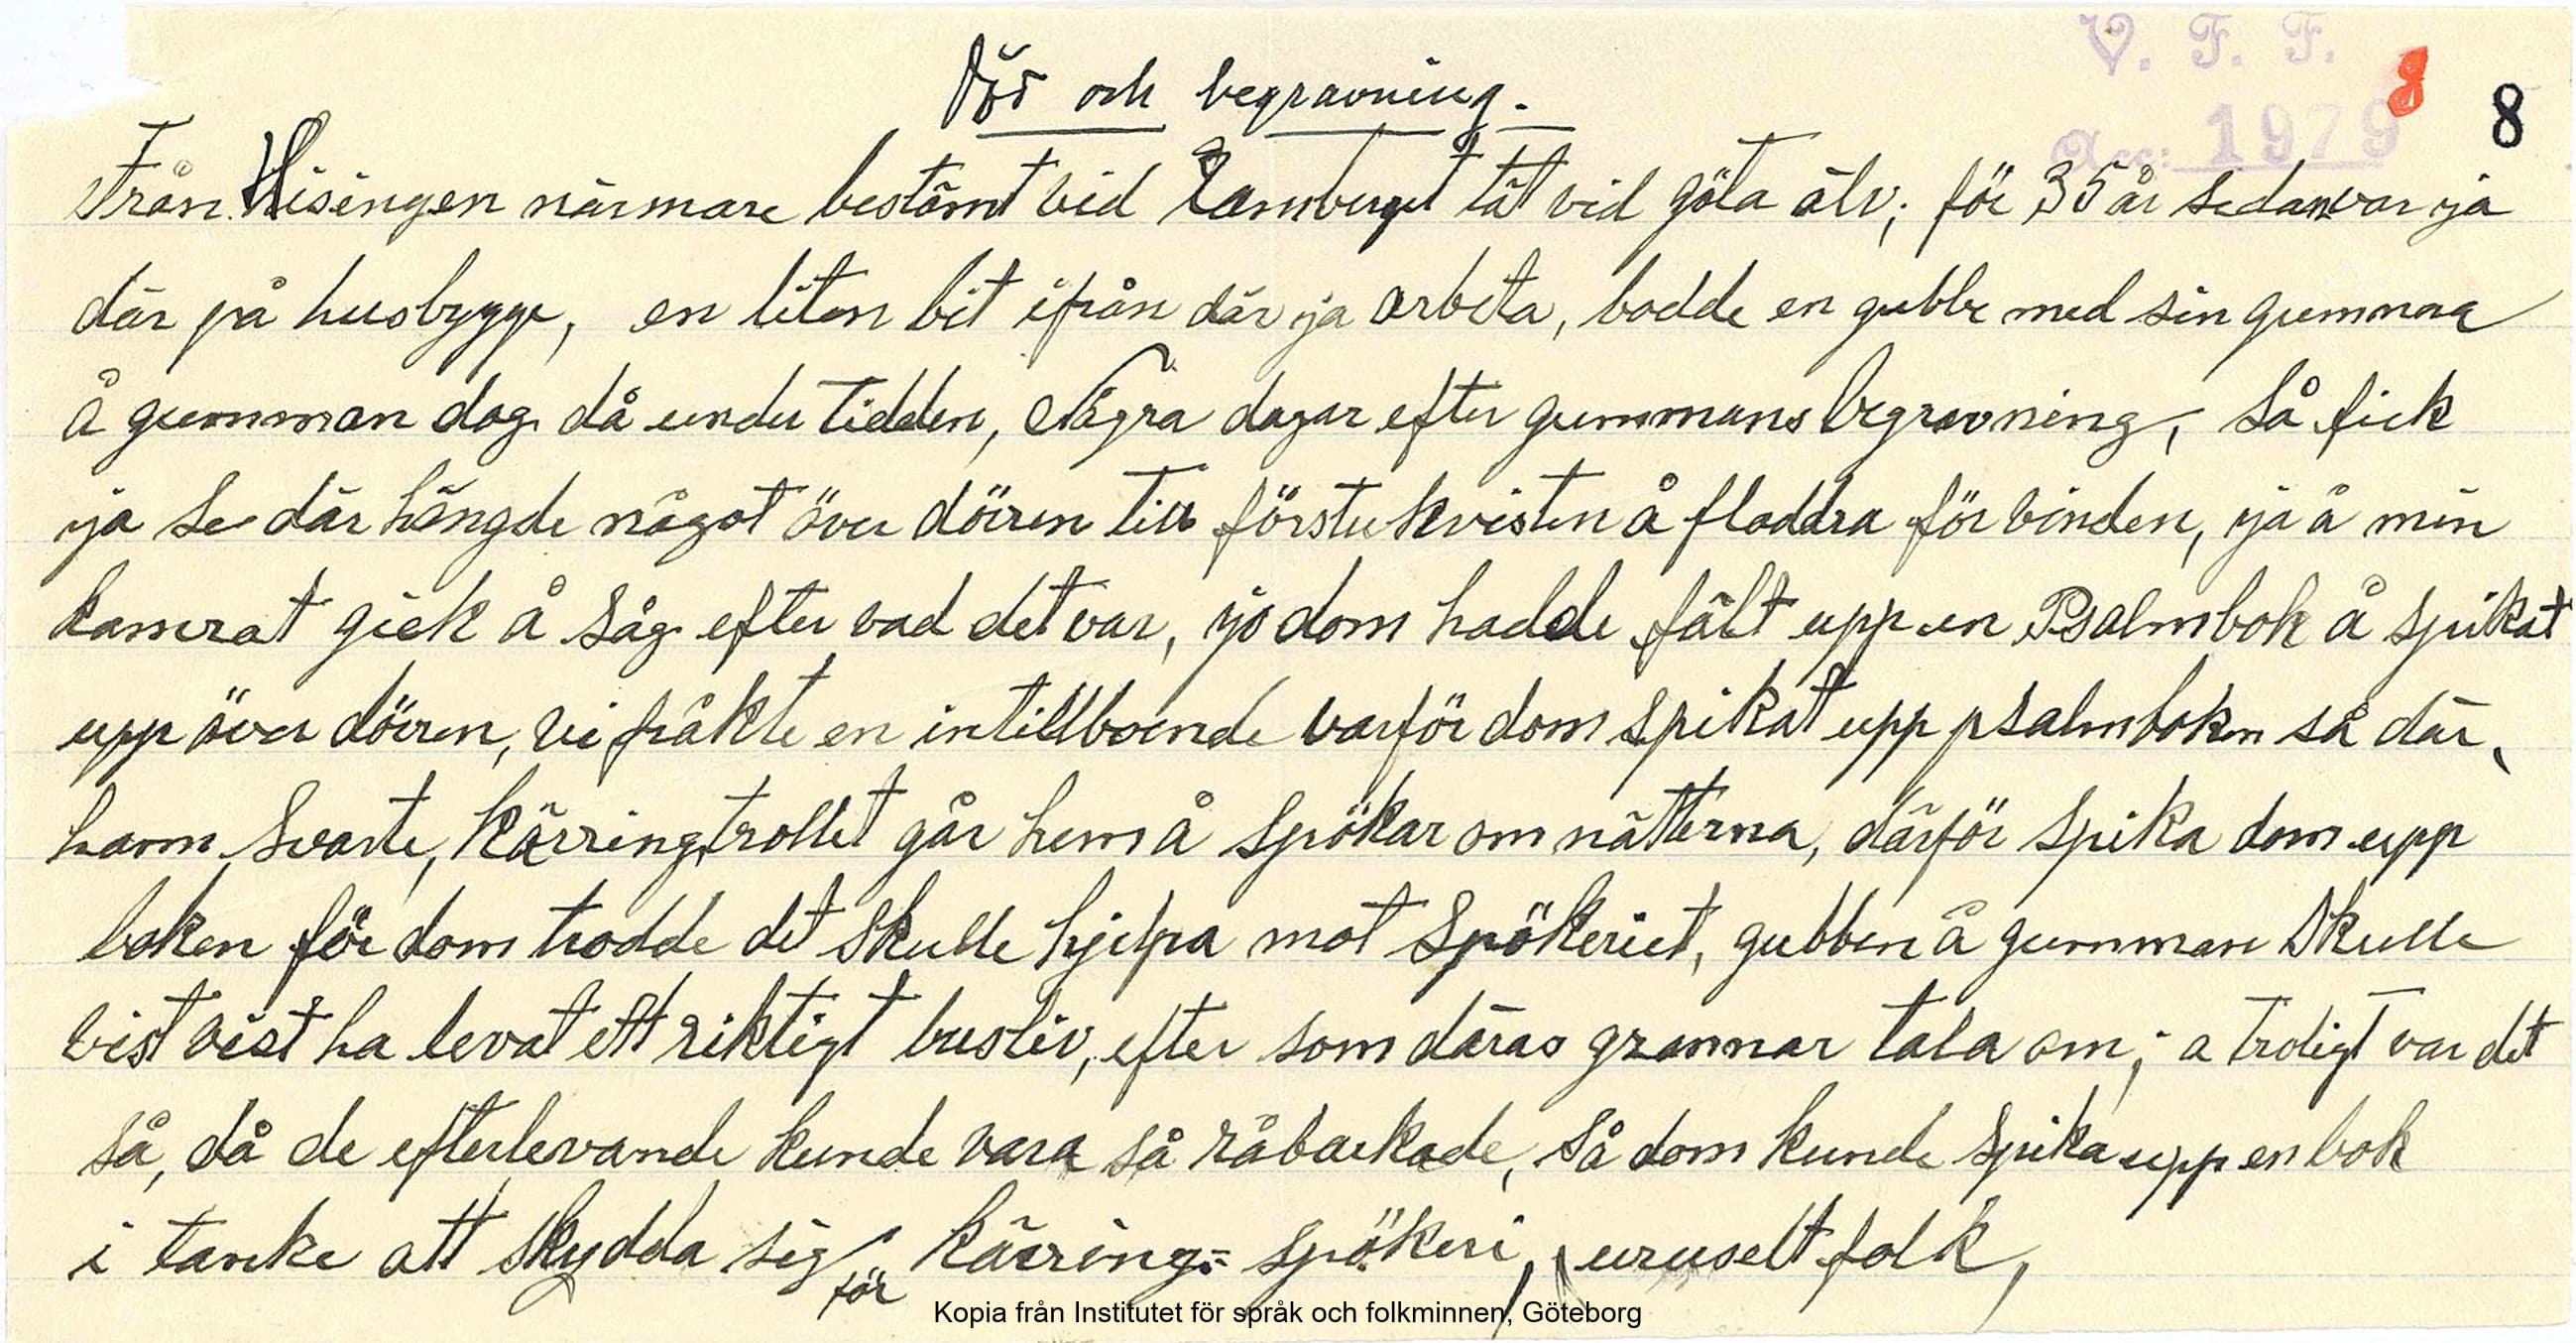 V. F. F.
Död och begravning.
8
8
Acc: 1979
Från Hisingen närmare bestämt vid Ramberget tät vid göta älv; för 35 år sedan var ja
där på husbygge, en liten bit ifrån där ja arbeta, bodde en gubbe med sin gumma
å gumman dog då under tidden, Några dagar efter gummans begravning, så fick
ja se där hängde något över dörren till förstukvisten å fladdra för vinden, ja å min
kamrat gick å såg efter vad det var, jo dom hadde fält upp en Psalmbok å spikat
upp över dörren, vi fråkte en intillboende varför dom spikat upp psalmboken så där,
hann svarte, kärringtrollet går hem å spökar om nätterna, därför spika dom upp
boken för dom trodde det skulle hjelpa mot spökeriet, gubben å gumman skulle
vist vist ha levat ett riktigt busliv, efter som däras grannar tala om; a troligt var det
så, då de efterlevande kunde vara så råbarkade, så dom kunde spika upp en bok
i tanke att skydda sig för kärring= spökeri, uruselt folk,
Kopia från Institutet för språk och folkminnen, Göteborg